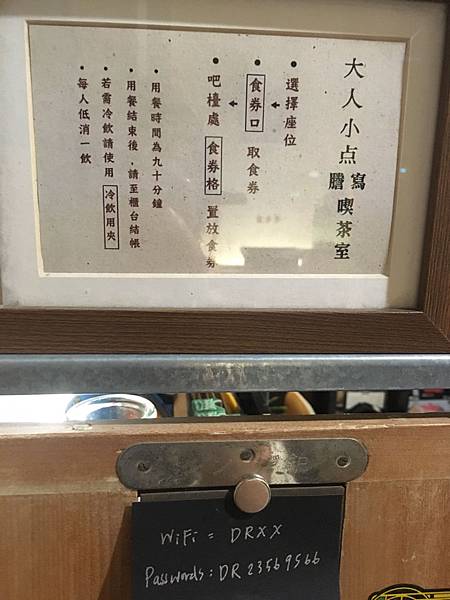 大人小点寫謄喫茶室
• 選擇座位
• 食券口 取食券
• 吧檯處 食券格 置放食券
• 用餐時間為九十分鐘
• 用餐結束後，請至櫃台結帳
• 若需冷飲請使用 冷飲用夾
• 每人低消一飲
WiFi = DRXX
Passwords: DR23569566